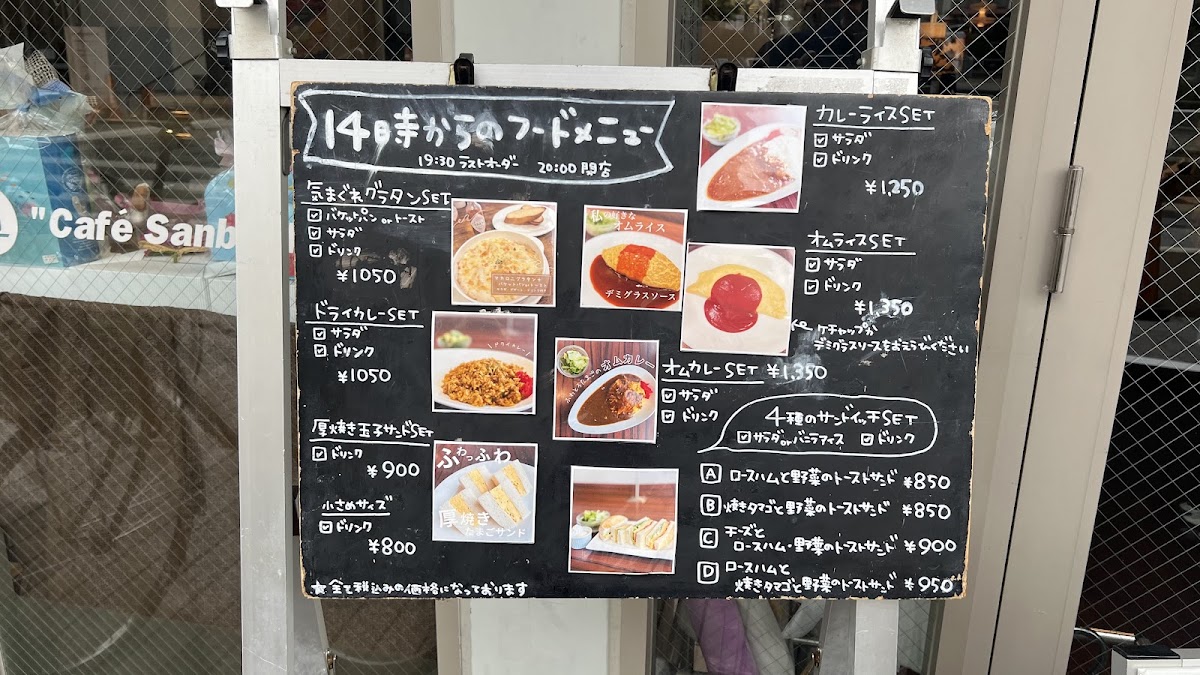 14時からのフードメニュー
19:30 ラストオーダー 20:00 閉店
気まぐれグラタンSET
バケットパン or トースト
サラダ
ドリンク
¥1050
ドライカレーSET
サラダ
ドリンク
¥1050
厚焼き玉子サンドSET
ドリンク
¥900
小さめサイズ
ドリンク
¥800
★全て税込みの価格になっております
私の好きな
オムライス
デミグラスソース
ドライカレー
オムカレー
ふわっふわ
厚焼き
たまごサンド
カレーライスSET
サラダ
ドリンク
¥1,250
オムライスSET
サラダ
ドリンク
¥1,350
ケチャップか
デミグラスソースをおえらびください
オムカレーSET ¥1,350
サラダ
ドリンク
4種のサンドイッチSET
サラダorバニラアイス ドリンク
A ロースハムと野菜のトーストサンド ¥850
B 焼きタマゴと野菜のトーストサンド ¥850
C チーズと
ロースハム・野菜のトーストサンド ¥900
D ロースハムと
焼きタマゴと野菜のトーストサンド ¥950
"Café Sanb